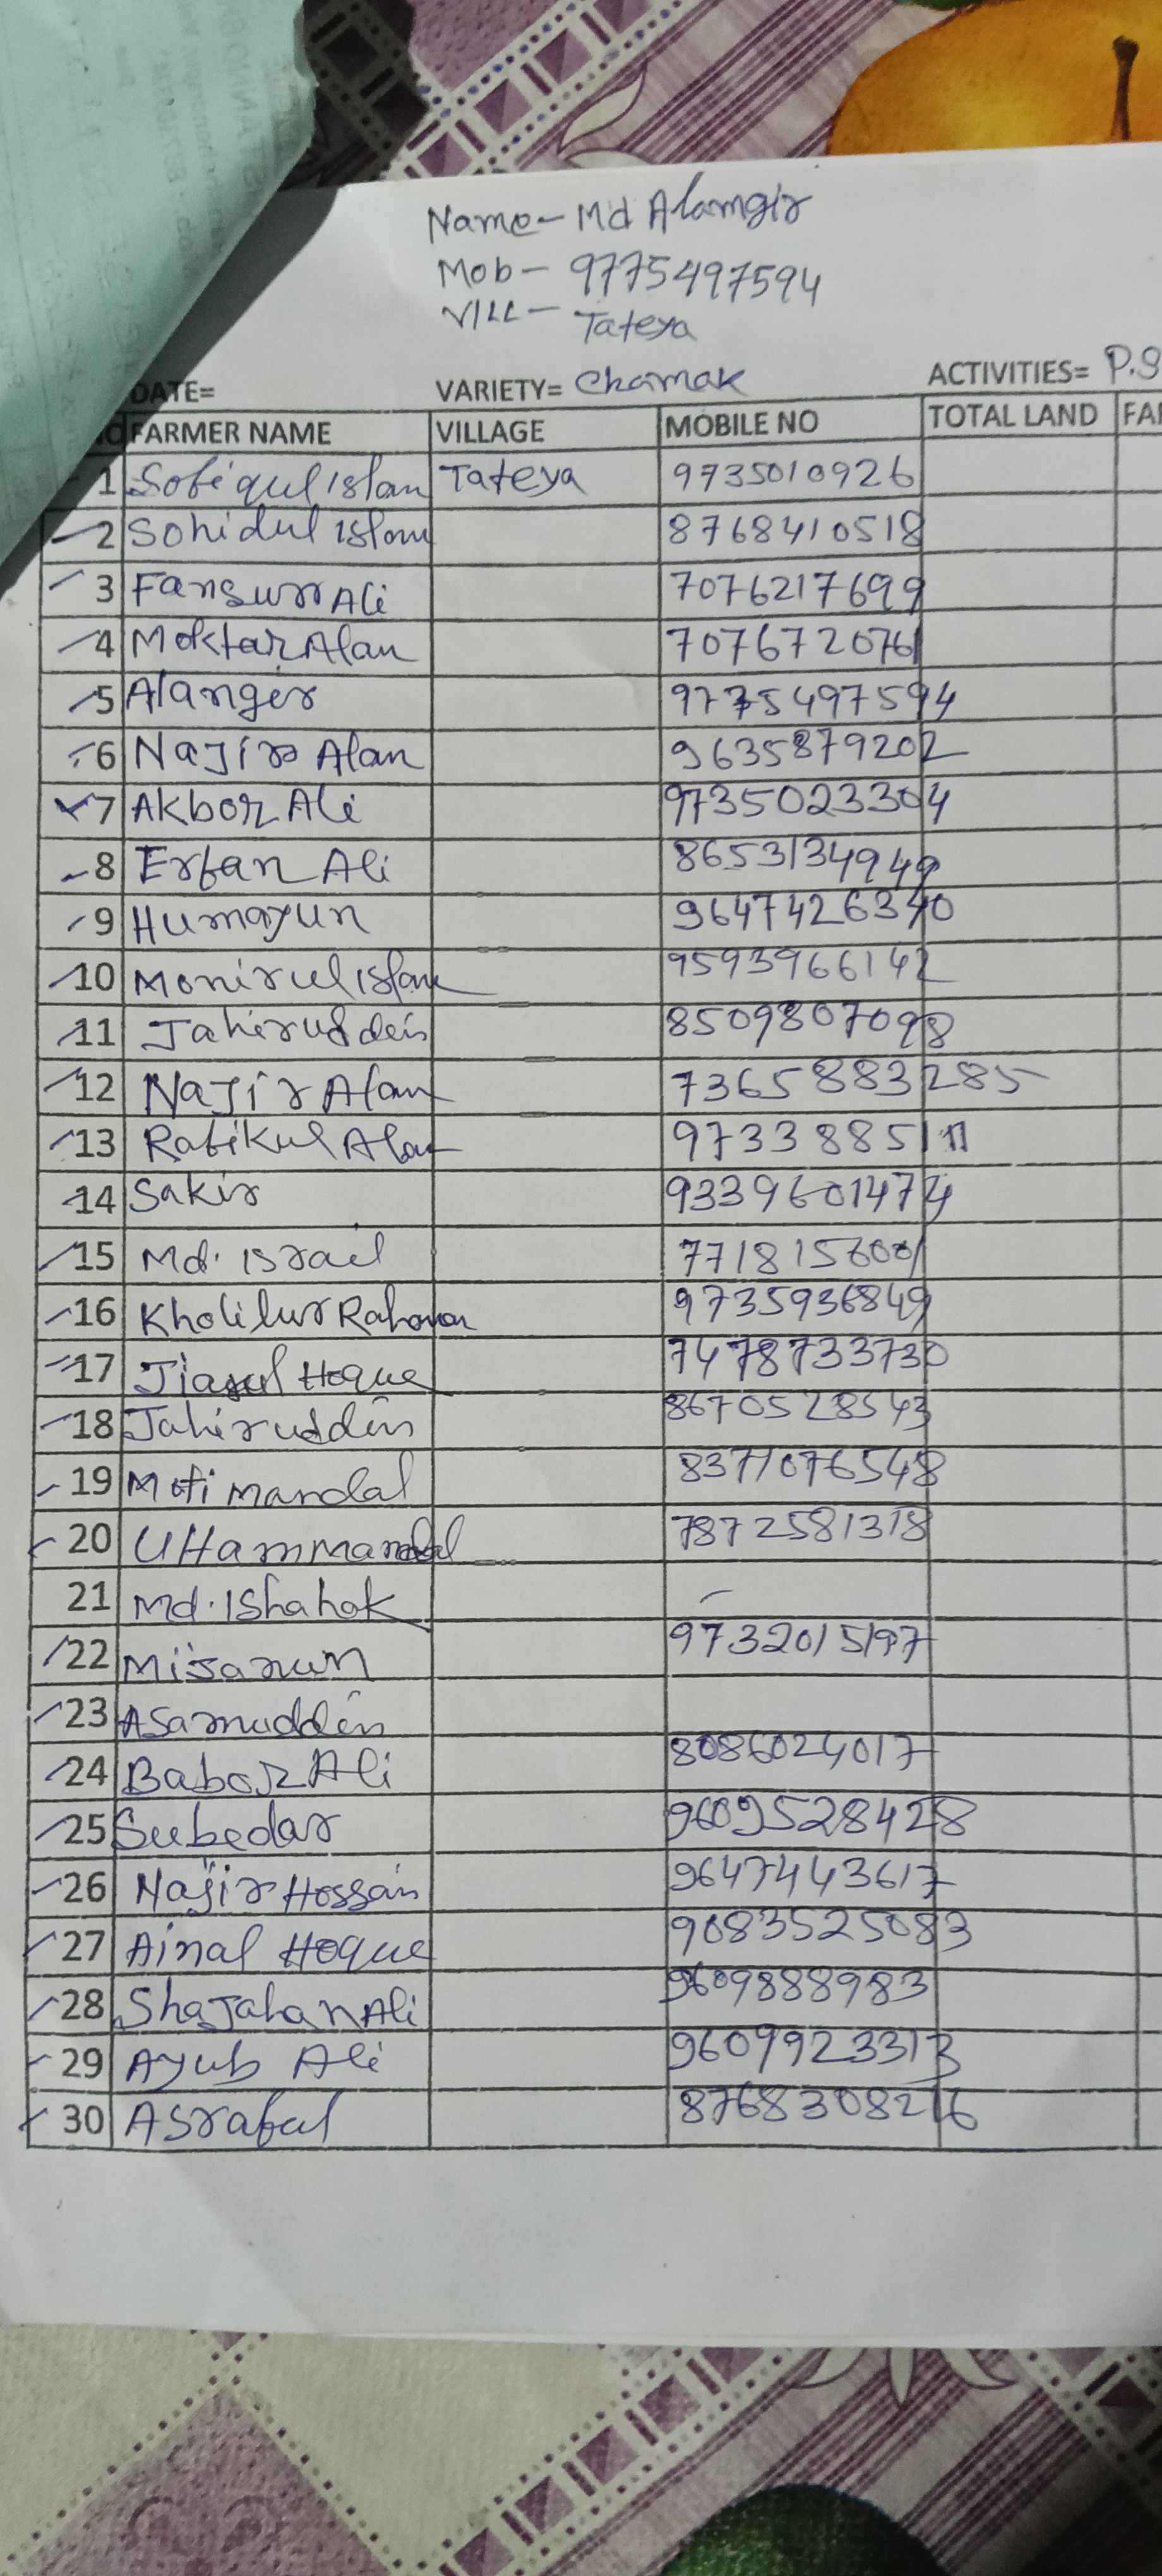 Name- Md Alamgir
Mob- 9775497594
VILL- Tateya
DATE= VARIETY= Chamak ACTIVITIES= P.S
FARMER NAME VILLAGE MOBILE NO TOTAL LAND FA
1 Sofiqul Islam Tateya 9735010926
2 Sohidul Islam 8768410518
3 Fansurr Ali 7076217699
4 Moktar Alam 7076720761
5 Alangir 9775497594
6 Najir Alam 9635879202
7 Akbor Ali 9735023304
8 Erfan Ali 8653134949
9 Humayun 9647426340
10 Monirul Islam 9593966142
11 Jahiruddin 8509807098
12 Najir Alam 7365883285
13 Rafikul Alam 9733885111
14 Sakir 9339601474
15 Md. Israil 7718156001
16 Kholilur Rahaman 9735936849
17 Jiaul Hoque 7478733730
18 Jahiruddin 8670528543
19 Moti mandal 8371076548
20 Uttam mandal 7872581318
21 Md. Ishahak -
22 Mijanun 9732015197
23 Asamuddin
24 Babor Ali 8086024017
25 Subedar 9609528428
26 Najir Hossain 9647443617
27 Ainal Hoque 9083525083
28 Shajahan Ali 9609888983
29 Ayub Ali 9609923313
30 Asraful 8768308216